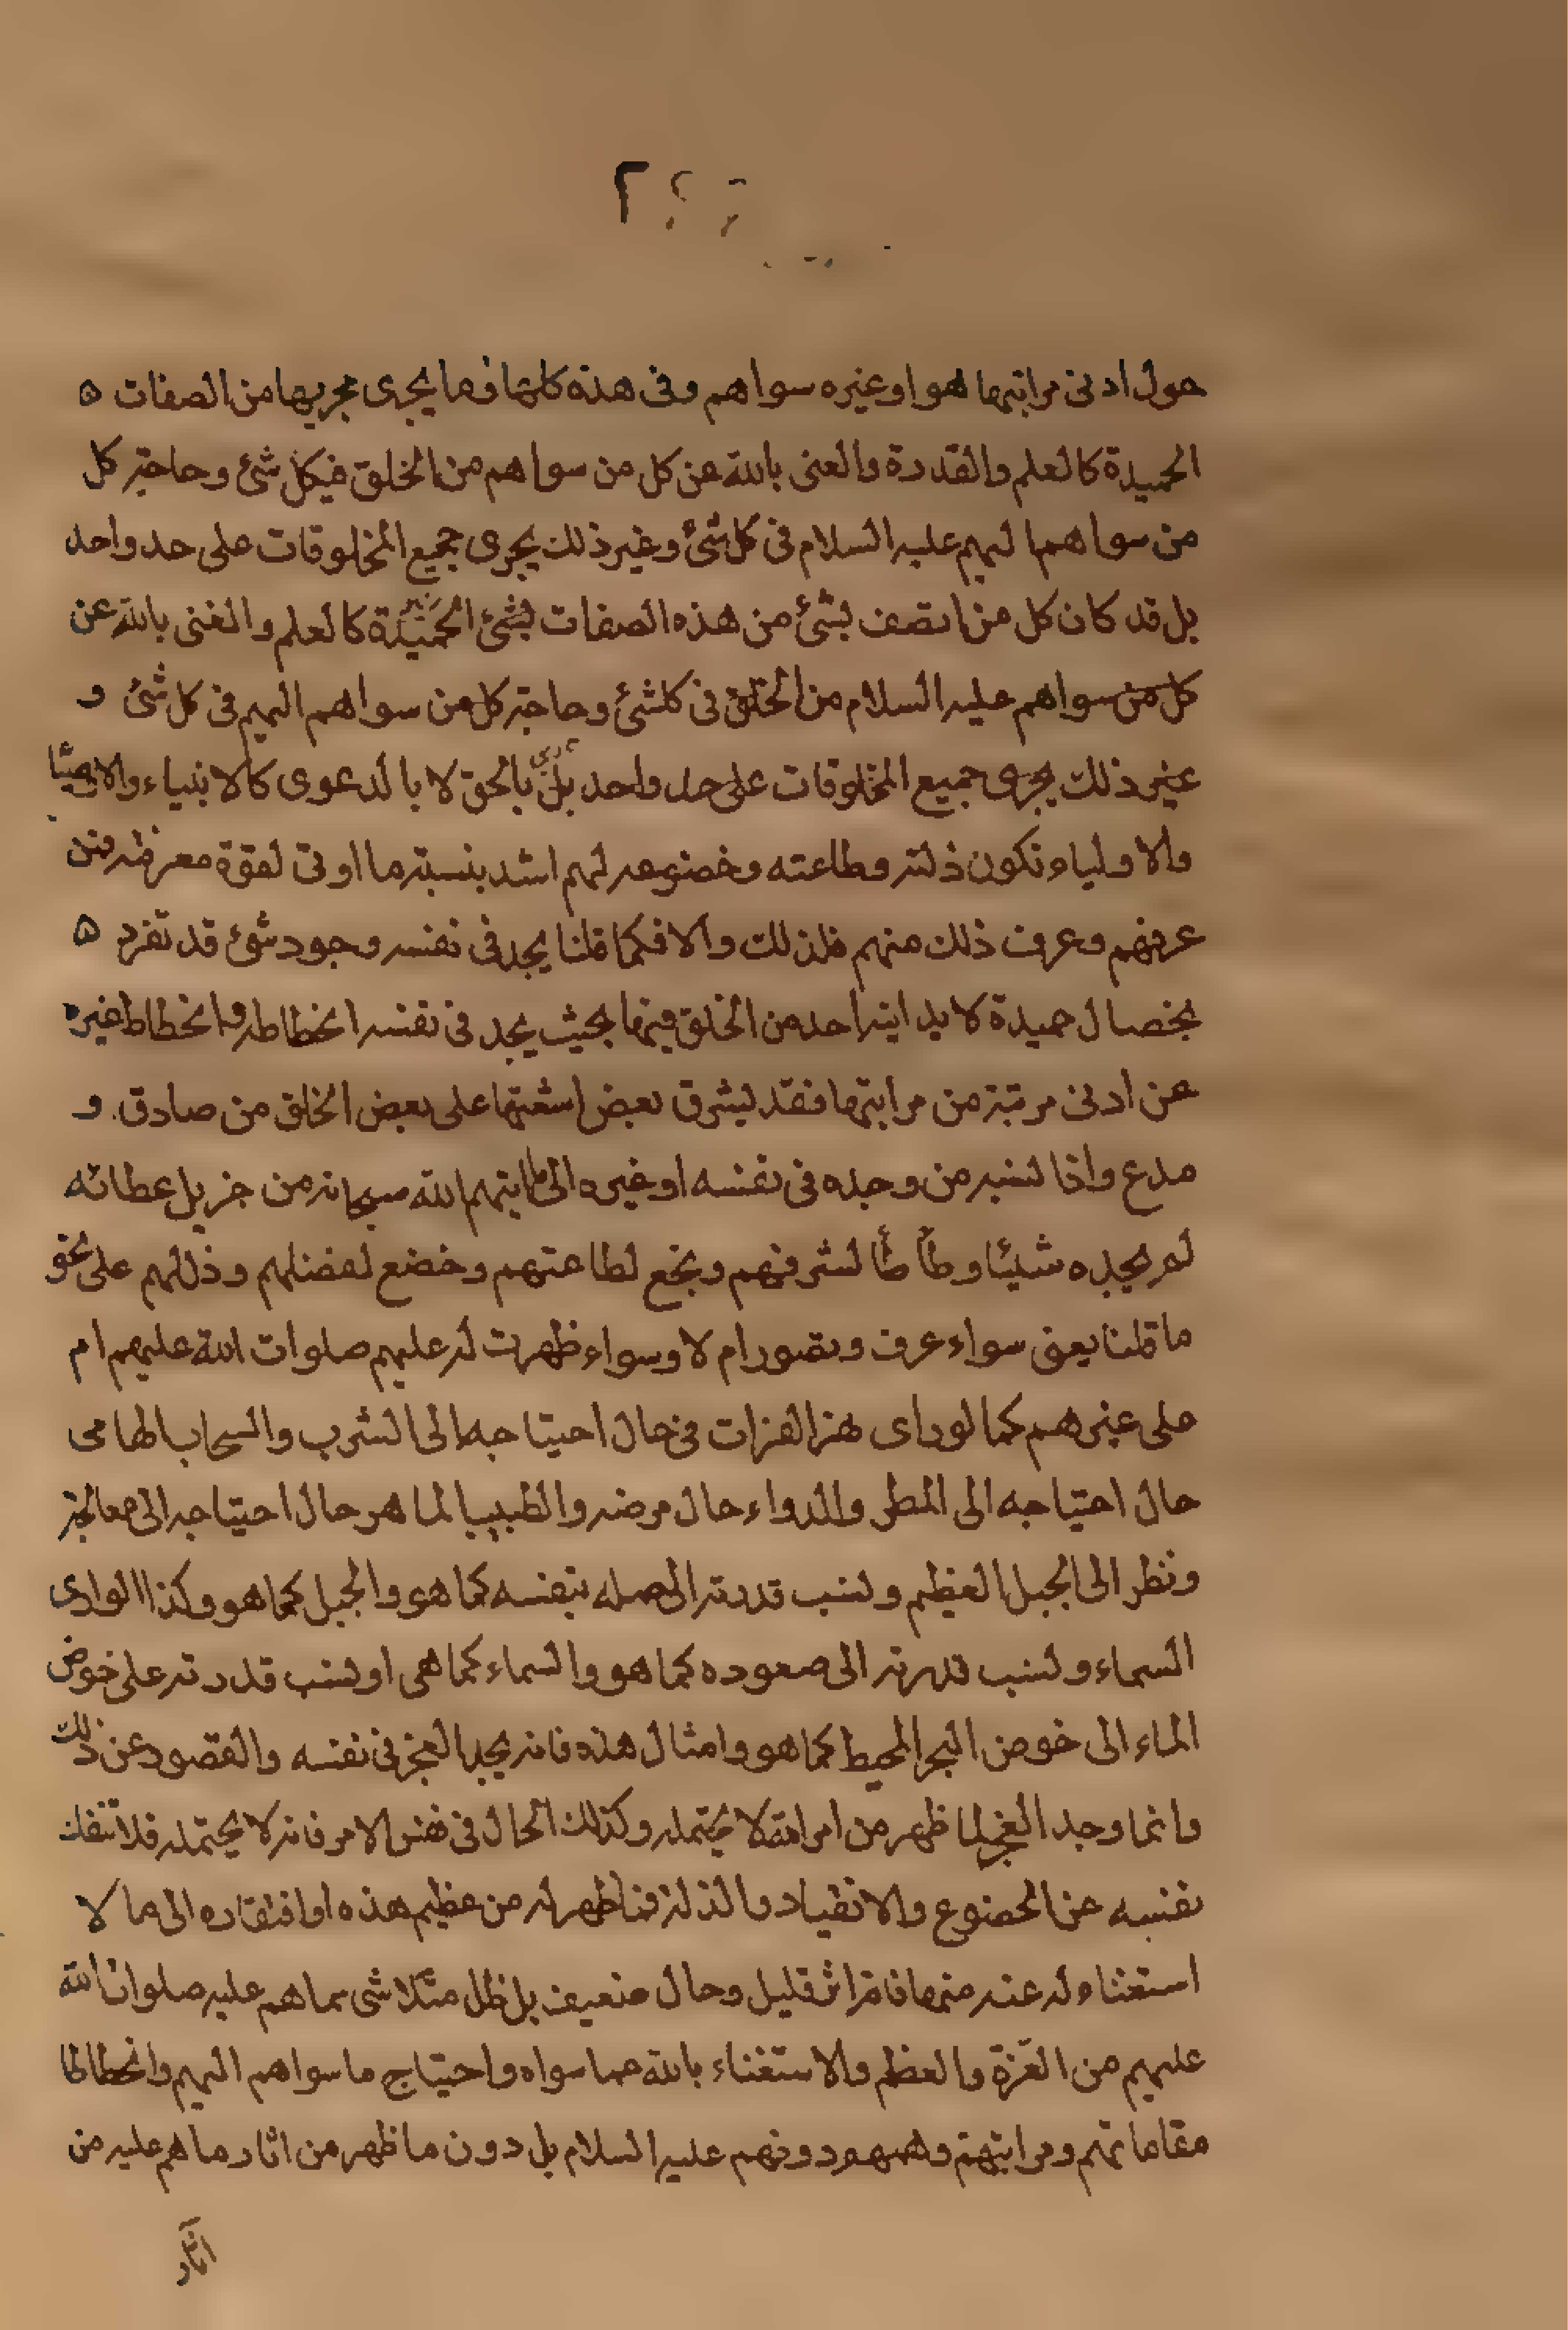 حول ادنى مراتبها هو او غيره سواهم وفى هذه كلها وما يجرى مجريها من الصفات ٥
الحميدة كالعلم والقدرة والغنى بالله عن كل من سواهم من الخلق فى كل شئ وحاجة كل
من سواهما ليهم عليه السلام فى كل شئ وغير ذلك يجرى جميع المخلوقات على حد واحد
بل قد كان كل من اتصف بشئ من هذه الصفات بشئ الحميدة كالعلم والغنى بالله عن
كل من سواهم عليه السلام من الخلق فى كلشئ وحاجة كل من سواهم اليهم فى كل شئ و
غير ذلك يجرى جميع المخلوقات على حد واحد بل بالحق لا بالدعوى كالانبياء والاوصيا
والاولياء تكون ذلته وطاعته وخضوعه لهم اشد بنسبة ما اوتى لقوة معرفته فمن
عرفهم وعرف ذلك منهم فلذلك والا فكما قلنا يجد فى نفسه وجود شئ قد تفرد ٥
بخصال حميدة لا يدانيه احد من الخلق فيها بحيث يجد فى نفسه انحطاطه وانحطاط غيره
عن ادنى مرتبة من مراتبها فقد ليشرق بعض اشعتها على بعض الخلق من صادق و
مدع واذا نسبه من وجده فى نفسه او غيره الى ما اتيهم الله سبحانه من جزيل عطائه
لم يجده شيئا وطأطأ لشرفهم وبخع لطاعتهم وخضع لفضلهم وذل لهم على نحو
ما قلنا يعنى سواء عرف وتصور ام لا وسواء ظهرت له عليهم صلوات الله عليهم ام
على غيرهم كما لو راى نهر الفرات فى حال احتياجه الى الشرب والسحاب الهامى
حال احتياجه الى المطر والدواء حال مرضه والطبيب الماهر حال احتياجه الى معالجة
ونظر الى الجبل العظيم ونسب قدرته الى حمله بنفسه كما هو والجبل كما هو وكذا لو راى
السماء ونسب قدرته الى صعوده كما هو والسماء كما هى او نسب قدرته على خوض
الماء الى خوض البحر المحيط كما هو وامثال هذه فانه يجد العجز فى نفسه والقصور عن ذلك
وانما وجد العجز لما ظهر من امر الله لا يحتمله وكذلك الحال فى نفس الامر فانه لا يحتمله فلا تنفك
نفسه عن الخضوع والانقياد والذلة فما ظهر له من عظيم هذه او افتقاره الى ما لا
استغناء له عنه منها فانه اثر قليل وحال ضعيف بل ظل متلاشى مما هم عليه صلوات الله
عليهم من العزة والعظم والاستغناء بالله عما سواه واحتياج ما سواهم اليهم وانحطاطا
مقاماتهم ومراتبهم دونهم عليه السلام بل دون ما ظهر من اثار ما هم عليه من
اثار